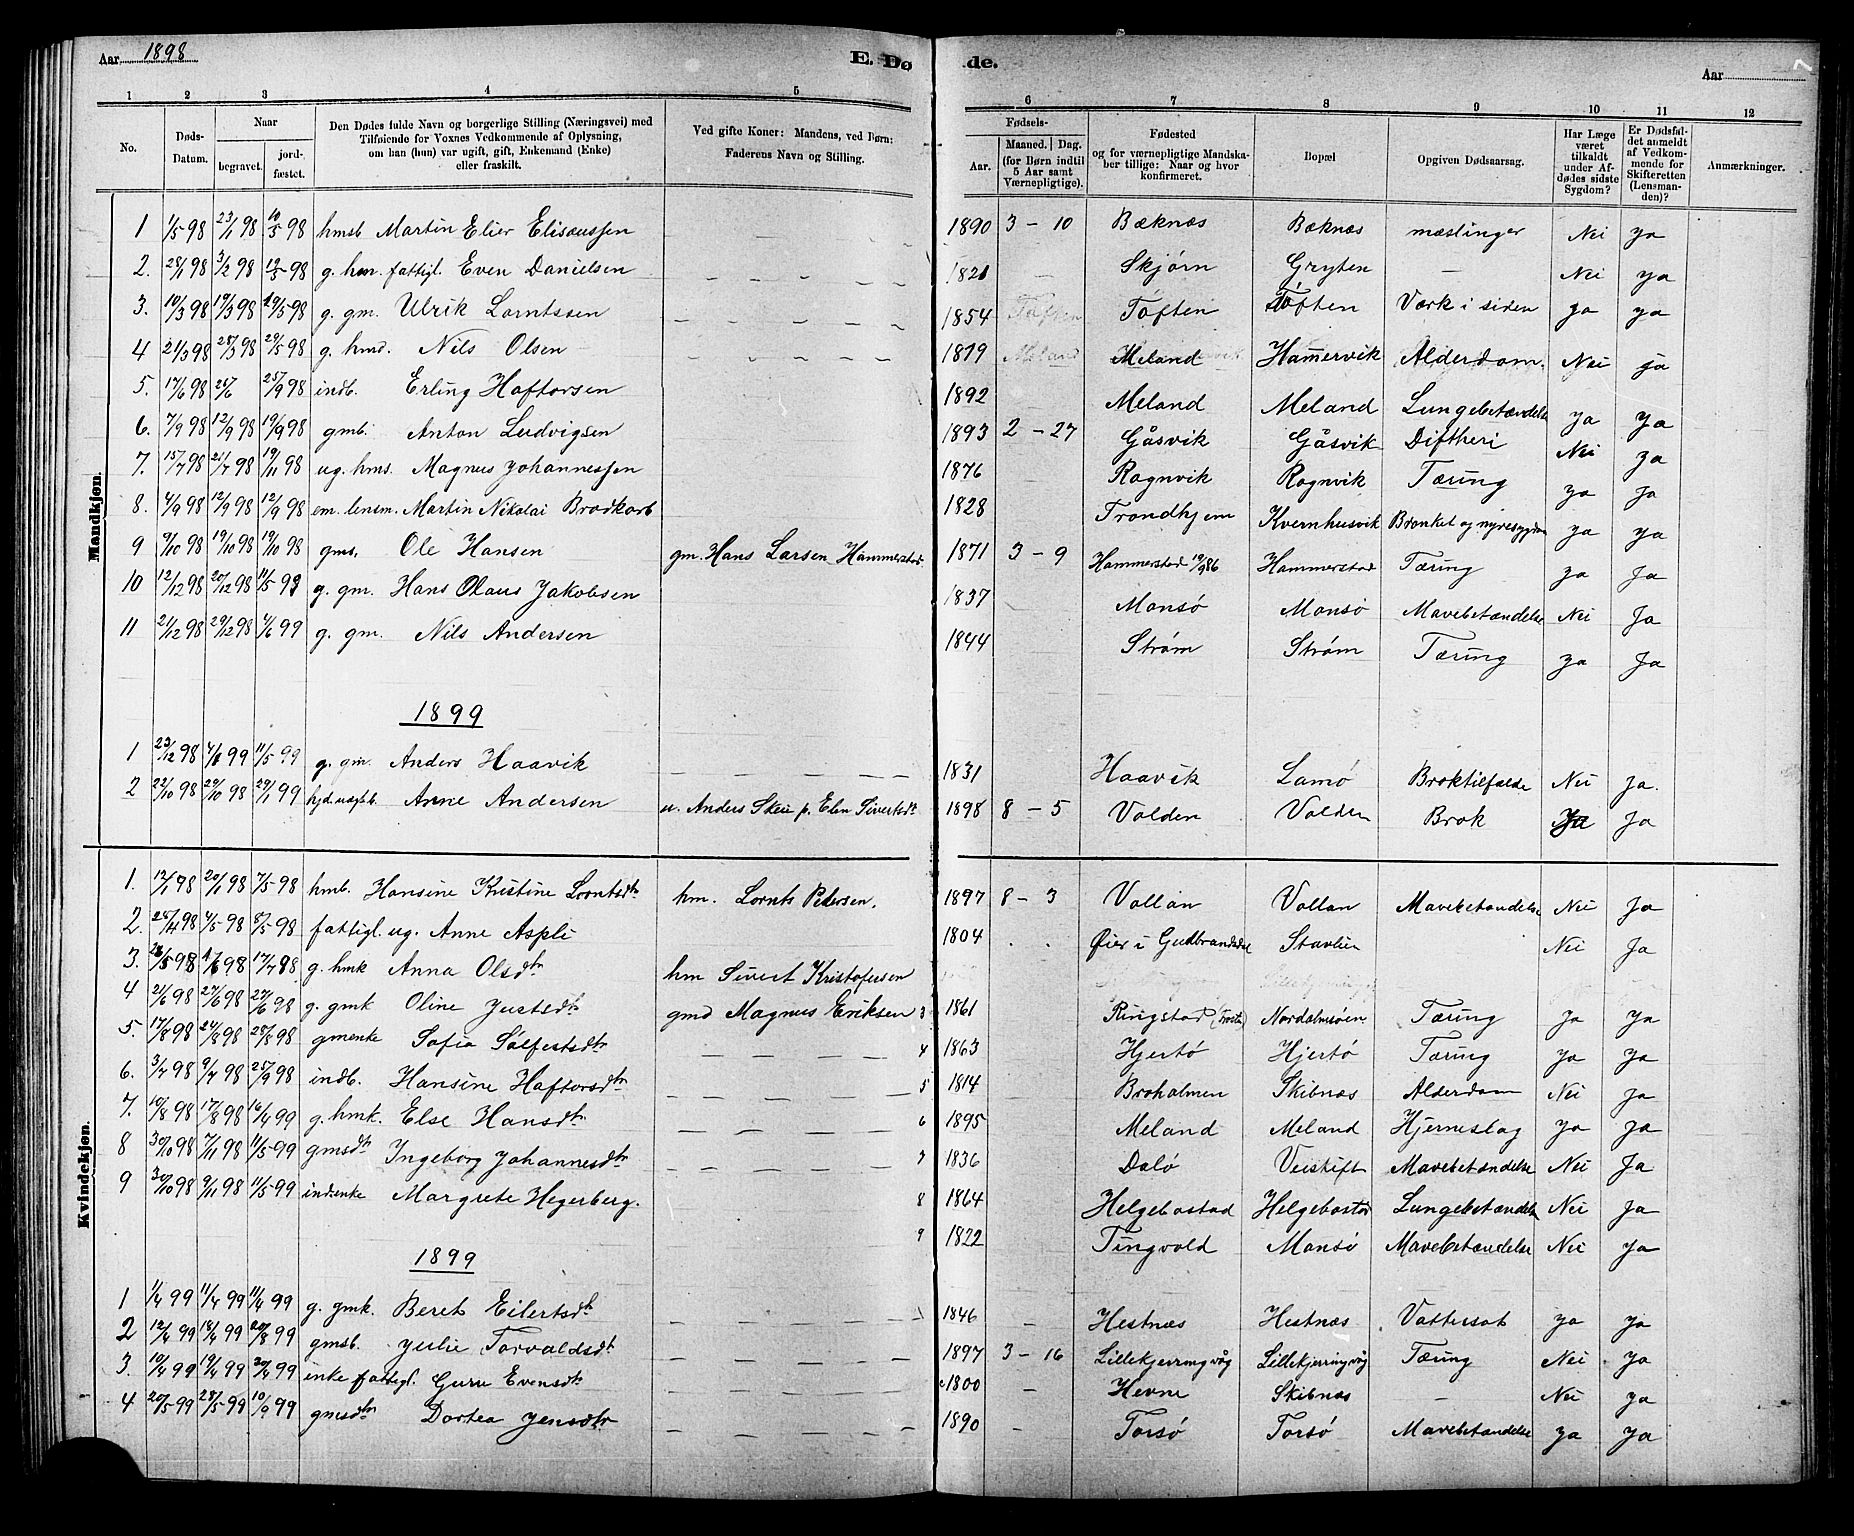 Aar 1898
E. Dø
de.
Aar
1 2 3 4 5 6 7 8 9 10 11 12
No.
Døds-Datum.
Naar
begravet.
jord-fæstet.
Den Dødes fulde Navn og borgerlige Stilling (Næringsvei) med
Tilføiende for Voxnes Vedkommende af Oplysning,
om han (hun) var ugift, gift, Enkemand (Enke)
eller fraskilt.
Ved gifte Koner: Mandens, ved Børn:
Faderens Navn og Stilling.
Fødsels-
Aar.
Maaned. Dag.
(for Børn indtil
5 Aar samt
Værnepligtige).
Fødested
og for værnepligtige Mandska-
ber tillige: Naar og hvor
konfirmeret.
Bopæl.
Opgiven Dødsaarsag.
Har Læge
været
tilkaldt
under Af-
dødes sidste
Sygdom?
Er Dødsfal-
det anmeldt
af Vedkom-
mende for
Skifteretten
(Lensman-
den)?
Anmærkninger.
Mandkjøn.
1 1/5 98 23/1 98 10/5 98 hmsb Martin Elier Elisæussen 1890 3 - 10 Bæknæs Bæknæs mæslinger Nei Ja
2. 28/1 98 3/2 98 19/5 98 g. hm. fattigl. Even Danielsen 1821 Skjørn Gryten — Nei ya
3. 10/3 98 19/3 98 29/5 98 g. gm. Ulrik Lorntssen 1854 Tøften Tøften Tøften Værk i siden ja ya
4 21/3 98 28/3 98 29/5 98 g. hmd. Nils Olsen 1819 Meland Meland Hamervik Alderdom. Nei ja
5. 17/6 98 25/6 25/9 98 indb. Erling Haftorsen 1892 Meland Meland Lungebetændelse ya ya
6. 7/9 98 12/9 98 19/9 98 gmb. Anton Ludvigsen 1893 2 - 27 Gåsvik Gåsvik Diftheri Nei ja
7. 15/7 98 21/7 98 19/11 98 ug. hms. Magnus Johannessen 1876 Ragnvik Ragnvik Tæring ya Ja
8. 4/9 98 12/9 98 12/9 98 em. lensm. Martin Nikolai Brodkorb 1828 Trondhjem Kvernhusvik Bronket og nyresygdom ya ya
9 9/10 98 19/10 98 19/10 98 gms. Ole Hansen gm. Hans Larsen Hammerstad 1871 3 - 9 Hammerstad 19/9 86 Hammerstad Tæring ya Ja
10 12/12 98 20/12 98 11/5 99 g. gm. Hans Olaus Jakobsen 1837 Mansø Mansø Mavebetændelse Nei Ja
11 21/12 98 29/12 98 4/6 99 g. gm. Nils Andersen 1844 Strøm Strøm Tæring ya Ja
1899
1 23/12 98 4/1 99 11/5 99 g. gm. Anders Haavik 1831 Haavik Lamø Broktilfælde Nei Ja.
2 22/10 98 29/10 98 29/1 99 Anne Andersen u. Anders Skei p. Elen Sivertsdt 1898 8 - 5 Valden Valden Brok Ja Ja
Kvindekjøn.
1. 12/1 98 20/1 98 7/5 98 hmb. Hansine Kristine Lorntsdtr hm. Lornts Petersen. 1897 8 - 3 Vallan Vallan Mavebetændelse Nei Ja
2. 25/4 98 4/5 98 8/5 98 fattigl. ug. Anne Aspli 1804 Øier i Gudbrandsdal Stavlien Nei Ja
3. 23/5 98 1/6 98 17/7 98 g. hmk Anna Olsdtr hm Sivert Kristofersen
4 21/6 98 27/6 98 27/6 98 g. gmk Oline Justsdtr gmd Magnus Eriksen 3 1861 Ringstad Nordalmsøen Tæring Ja Ya
5. 17/8 98 24/8 98 28/8 98 gmenke Sofia Sølfestsdtr 4 1863 Hjertø Hjertø Tæring ya ya
6. 3/7 98 9/7 98 25/9 98 indb. Hansine Haftorsdtr 5 1814 Broholmen Skibnæs Alderdom Nei Ja
7. 10/8 98 17/8 98 16/4 99 g. hmk. Else Hansdtr 6 1895 Meland Meland Hjerneslag ya Ja
8 30/10 98 7/11 98 11/5 99 gmsdtr Ingeborg Johannesdtr 7 1836 Dalø Veistift Mavebetændelse Nei Ja
9 30/10 98 9/11 98 11/5 99 indenke Margrete Hegerberg. 8 1864 Helgebostad Helgebostad Lungebetændelse Nei Ja
9 1822 Tingvold Mansø Mavebetændelse Nei ya
1899
1 1/4 99 11/4 99 11/4 99 g. gmk. Beret Eilertsdtr 1846 — Hestnæs Hestnæs Vattersot ya ya
2 12/4 99 18/4 99 20/8 99 gmsb. Julie Torvaldsdt 1897 3 - 16 Lillekjerringvåg Lillekjerringvåg Tæring Nei ya
3. 10/4 99 19/4 99 20/4 99 inke fattigl. Guru Evensdtr 1800 — Hevne Skibnæs — Nei ya
4 20/5 99 28/5 99 10/9 99 gmsdtr Dortea Jensdtr 1890 — Torsø Torsø Mavebetændelse ya ya